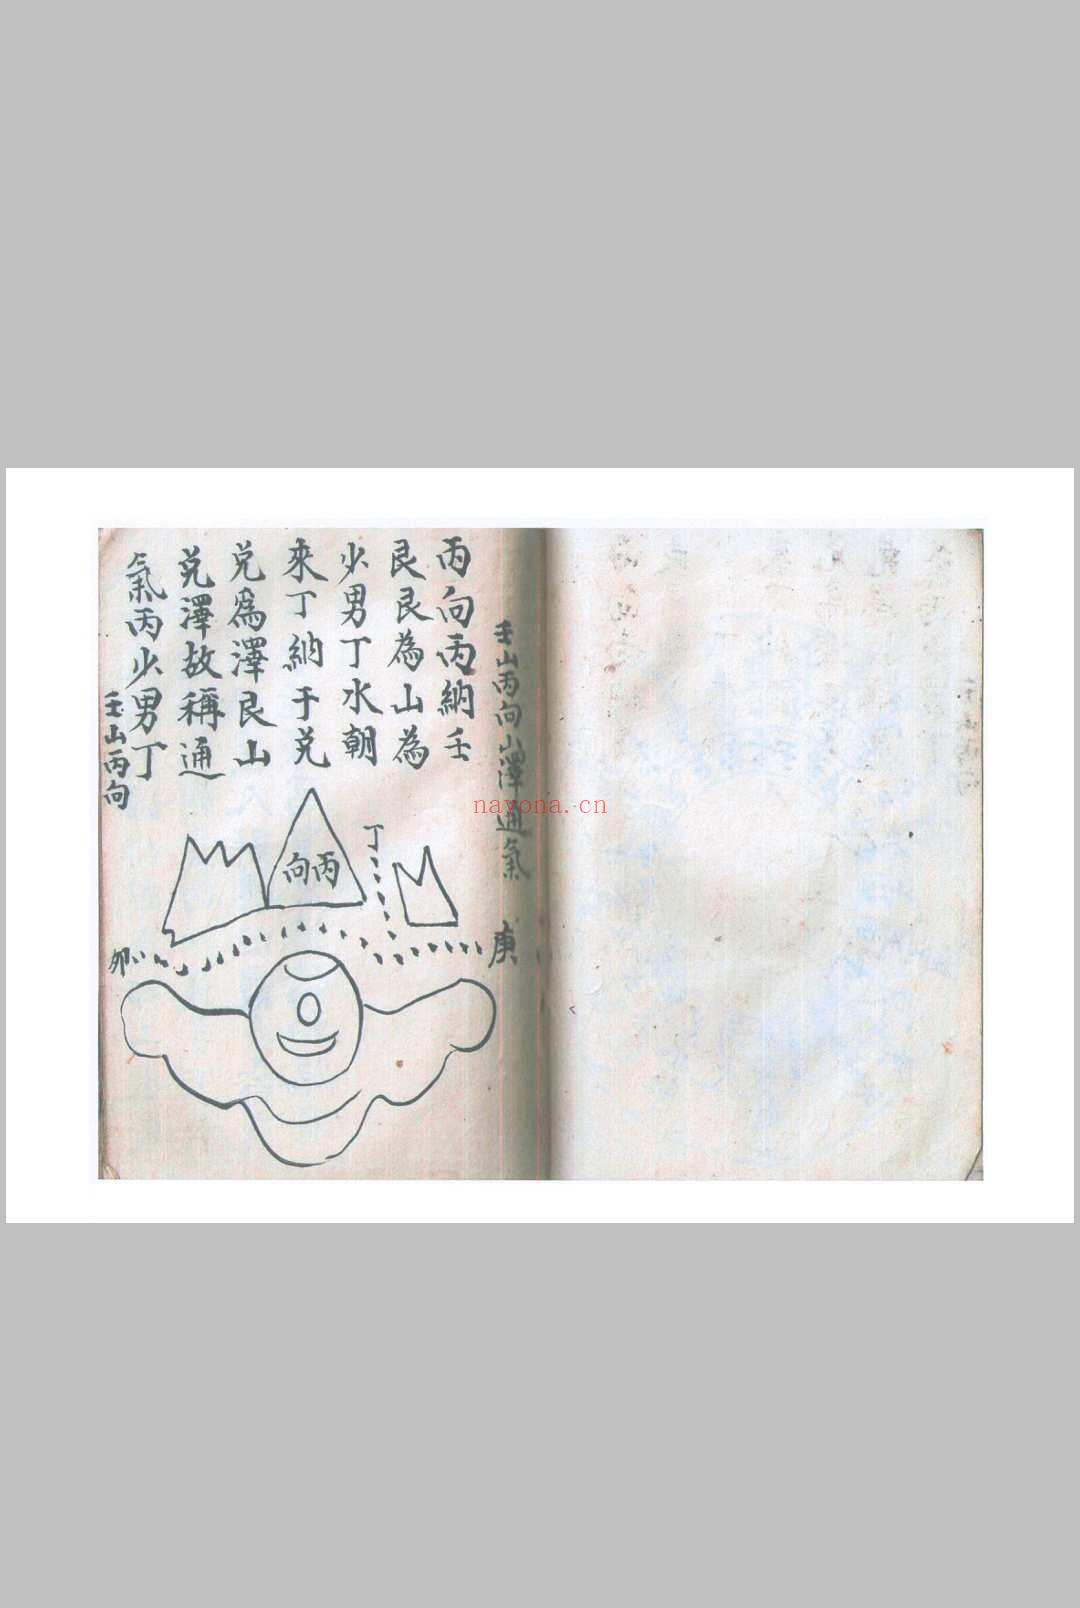 壬山丙向山澤通氣
丙向丙納壬
艮艮為山為
少男丁水朝
來丁納于兑
兑爲澤艮山
兑澤故稱通
氣丙少男丁
壬山丙向
丙向
丁
庚
卯
nayona.cn